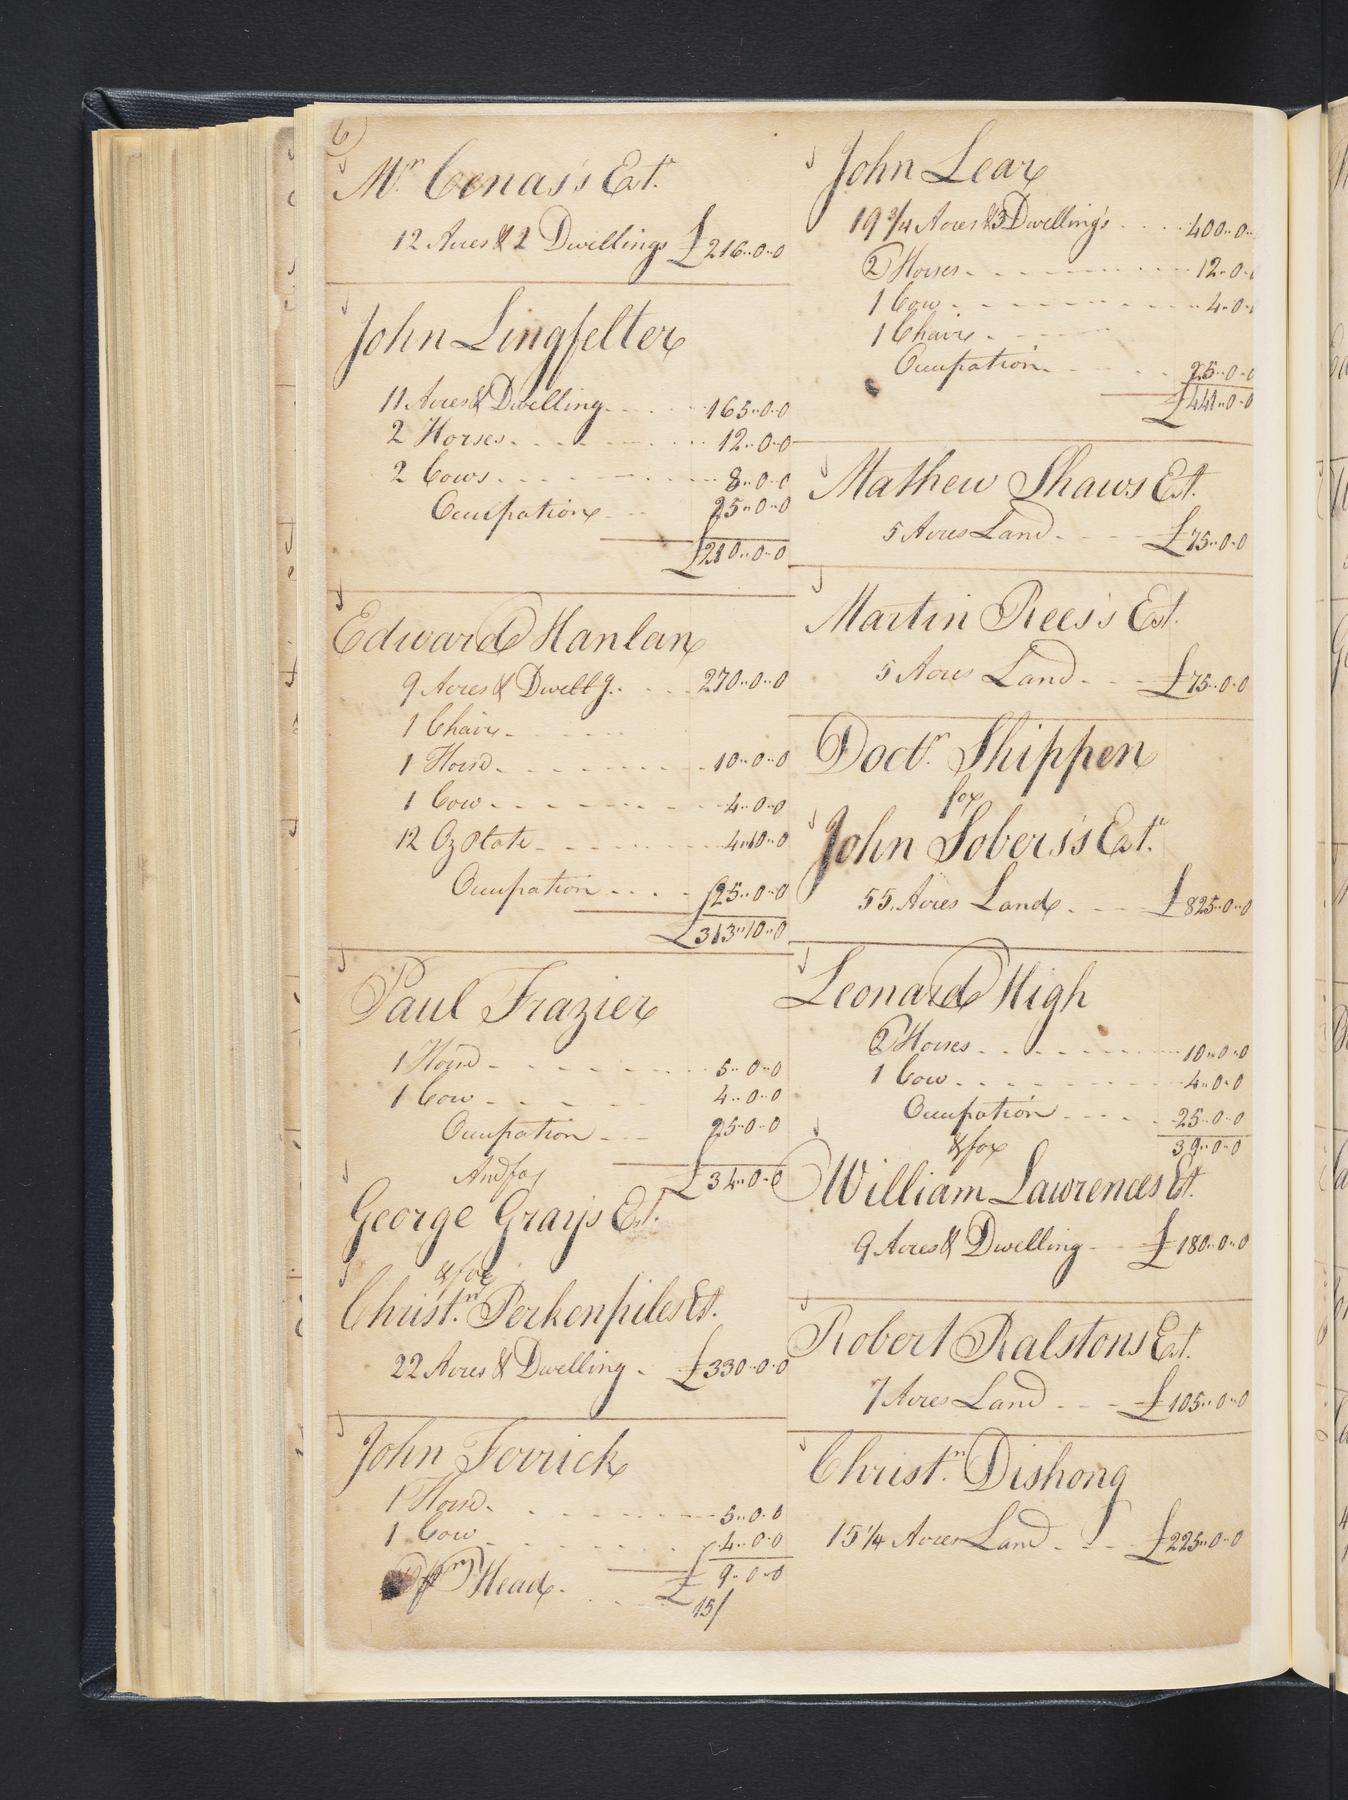 6)
Mr. Cenas's Est.
12 Acres & 2 Dwellings £216..0..0
John Lingfelter
11 Acres & Dwelling 165..0..0
2 Horses 12..0..0
2 Cows 8..0..0
Occupation 25..0..0
£210..0..0
Edward Hanlan
9 Acres & Dwellg. 270..0..0
1 Chair
1 Horse 10..0..0
1 Cow 4..0..0
12 Oz Plate 4..10..0
Occupation 25..0..0
£313..10..0
Paul Frazier
1 Horse 5..0..0
1 Cow 4..0..0
Occupation 25..0..0
And for £34..0..0
George Gray's Est.
& for
Christn. Perkenpiles Est.
22 Acres & Dwelling £330..0..0
John Ferrick
1 Horse 5..0..0
1 Cow 4..0..0
£9..0..0
Head 15/
John Lear
19 3/4 Acres & 3 Dwelling's 400..0..
2 Horses 12..0..
1 Cow 4..0..
1 Chair
Occupation 25..0..0
£441..0..0
Mathew Shaws Est.
5 Acres Land £75..0..0
Martin Rees's Est.
5 Acres Land £75..0..0
Doctr. Shippen
for
John Sobers's Est.
55 Acres Land £825..0..0
Leonard High
2 Horses 10..0..0
1 Cow 4..0..0
Occupation 25..0..0
& for 39..0..0
William Lawrences Est.
9 Acres & Dwelling £180..0..0
Robert Ralstons Est.
7 Acres Land £105..0..0
Christn. Dishong
15 1/4 Acres Land £225..0..0